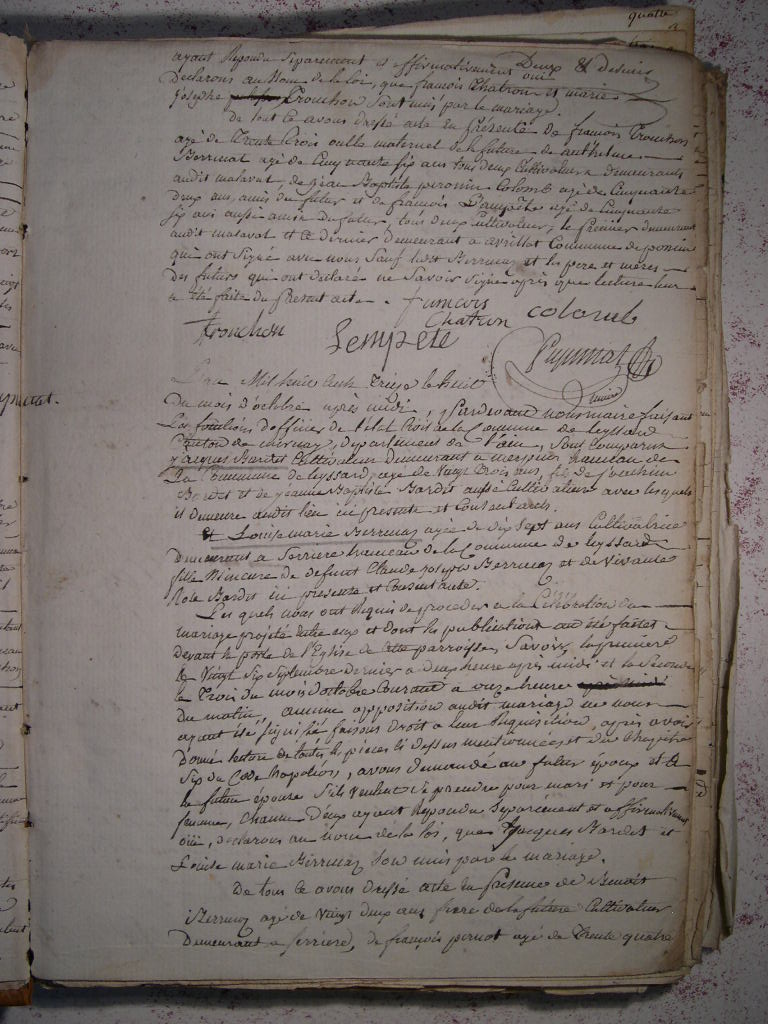 quatre
ayant Repondu Separement et affirmativement Deux & Desuivs
oui
Declarons au Nom de la loi, que françois Chatron et marie
josephe Trouchon sont unis par le mariage.
De tout ce avons Dressé acte En Présence de françois Trouchon
agé de Trente trois oncle maternel de la future de anthelme
Berruaz agé de Cinquante six ans tous deux Cultivateurs demeurants
audit malaval, de jean Baptiste Colomb agé de Cinquante
deux ans, amis du futur et de francois agé de Cinquante
six ans aussi amis du futur, tous deux Cultivateurs, le premier demeurant
audit malaval et Ce dernier Demeurant a Commune de poncin
qui ont Signé avec nous Sauf ledit Berruaz et les pere et meres
Des futurs qui ont déclaré ne Savoir signer après que lecture leur
a été faite du present acte.
francois
Chatron
colomb
Trouchon
Lempete
L'an Mil huit Cent Treize le huit
Du mois d'octobre après midi, pardevant nous maire faisant
Les fonctions d'officier de l'état Civil de la Commune de leyssard
Canton de Département de l'ain, Sont Comparus
jacques Bardet Cultivateur demeurant a hameau de
La Commune de leyssard, agé de Vingt Trois ans, fils de joachim
Bardet et de jeanne Baptiste Bardet aussi Cultivateurs avec lesquels
il demeure audit lieu ici presents et Consentants.
et Louise marie Berruaz agée de Dix Sept ans Cultivatrice
Demeurant a Serriere hameau de la Commune de leyssard
fille Mineure de defunt Claude joseph Berruaz et de Vivante
Rose Bardet ici presente et Consentante.
Les quels nous ont Requis de proceder a la Célébration du
mariage projeté entre eux et dont les publications ont été faites
Devant la porte de l'Eglise de cette parroisse, Savoir, la premiere
le Vingt Six Septembre Dernier a Deux heure après midi et la Seconde
le Trois du mois d'octobre Courant a onze heure
Du matin, aucune opposition audit mariage ne nous
ayant été Signifié faisons Droit a leur Requisition, après avoir
Donné lecture de toutes les pieces ci dessus mentionnées et du Chapitre
Six du Code Napoléon, avons demandé au futur époux et a
la future épouse S'ils veulent se prendre pour mari et pour
femme, Chacun D'eux ayant Repondu Separement et affirmativement
oui, declarons au nom de la loi, que Jacques Bardet et
Louise marie Berruaz Sont unis par le mariage.
De tous ce avons Dressé acte En presence de Benoit
Berruaz agé de Vingt deux ans frere de la future Cultivateur
Demeurant a Serriere, de françois agé de Trente quatre